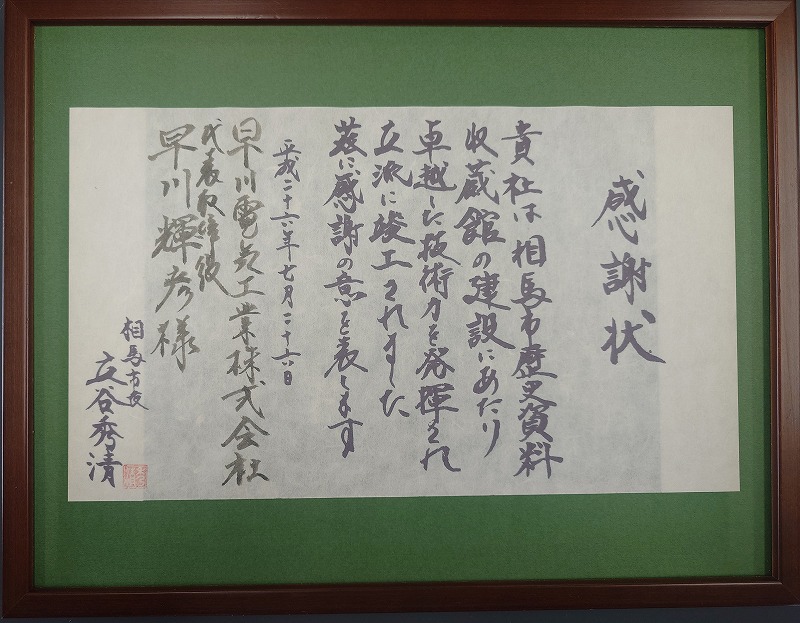 感謝状
貴社は相馬市歴史資料
収蔵館の建設にあたり
卓越した技術力を発揮され
立派に竣工されました
茲に感謝の意を表します
平成二十六年七月二十六日
早川電気工業株式会社
代表取締役
早川輝彦様
相馬市長
立谷秀清